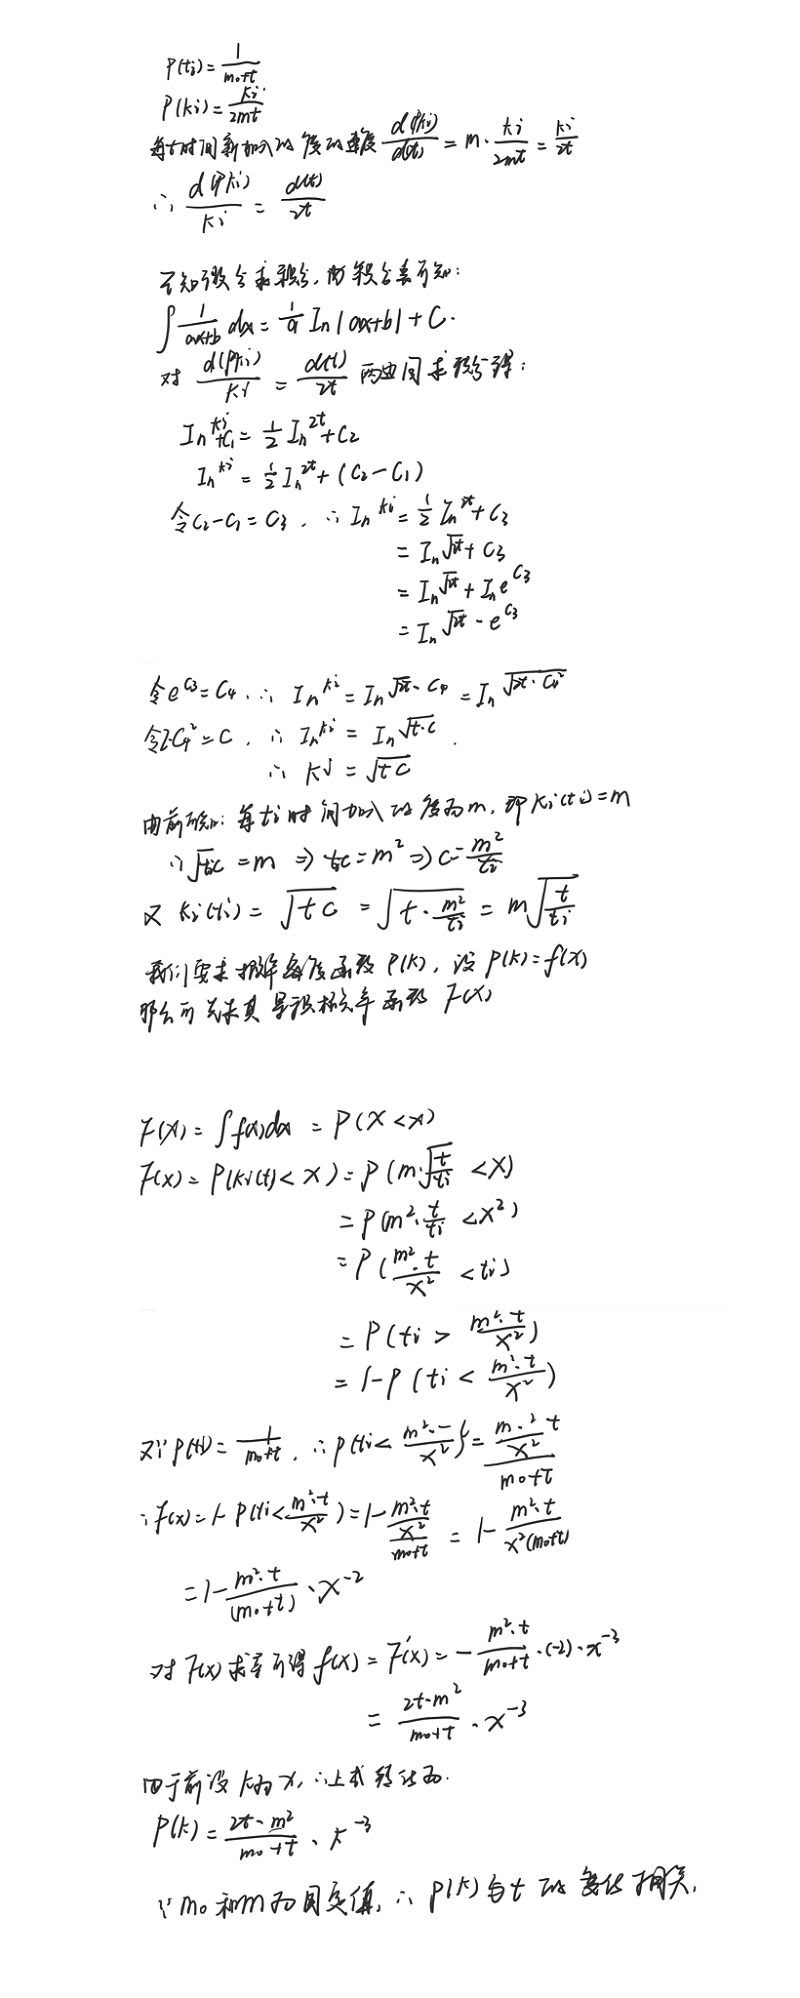 P(ti)=1/(m₀+t)
P(ki)=ki/(2mt)
每t时间新加入的度的速度 d(Pki)/d(t) = m·ki/(2mt) = ki/(2t)
∴ d(Pki)/ki = d(t)/(2t)
已知微分求积分,由积分表可知:
∫1/(ax+b) dx = 1/a In|ax+b| + C.
对 d(Pki)/ki = d(t)/(2t) 两边同求积分得:
In^ki+C₁ = 1/2 In^2t + C₂
In^ki = 1/2 In^2t + (C₂-C₁)
令C₂-C₁=C₃, ∴ In^ki = 1/2 In^2t + C₃
= In^√2t + C₃
= In^√2t + In e^C₃
= In^√2t · e^C₃
令e^C₃=C₄, ∴ In^ki = In^√2t·C₄ = In^√(2t·C₄²)
令2·C₄²=C, ∴ In^ki = In^√(t·C).
∴ ki = √(tC)
由前: 每ti时间加入的度为m, 即ki(ti)=m
∴ √(tiC) = m ⇒ tiC=m² ⇒ C=m²/ti
又 ki(ti) = √(tC) = √(t·m²/ti) = m√(t/ti)
我们要求概率密度函数P(k), 设P(k)=f(x)
那么可先求其累积概率函数 F(x)
F(x) = ∫f(x)dx = P(X<x)
F(x) = P(ki(t)<x) = P(m·√(t/ti) <x)
= P(m²·t/ti <x²)
= P(m²·t/x² <ti)
= P(ti > m²·t/x²)
= 1-P(ti < m²·t/x²)
又∵P(ti)=1/(m₀+t), ∴P(ti< m²·t/x²) = (m²·t/x²)/(m₀+t)
∴F(x)=1-P(ti<m²·t/x²)=1-(m²·t/x²)/(m₀+t) = 1-m²·t/(x²(m₀+t))
=1-m²·t/(m₀+t)·x⁻²
对F(x)求导可得 f(x)=F'(x)=-m²·t/(m₀+t)·(-2)·x⁻³
= 2t·m²/(m₀+t)·x⁻³
由于前设k为x, ∴上式转化为.
P(k)=2t·m²/(m₀+t)·k⁻³
∵m₀和m为固定值, ∴P(k)与t的变化相关.